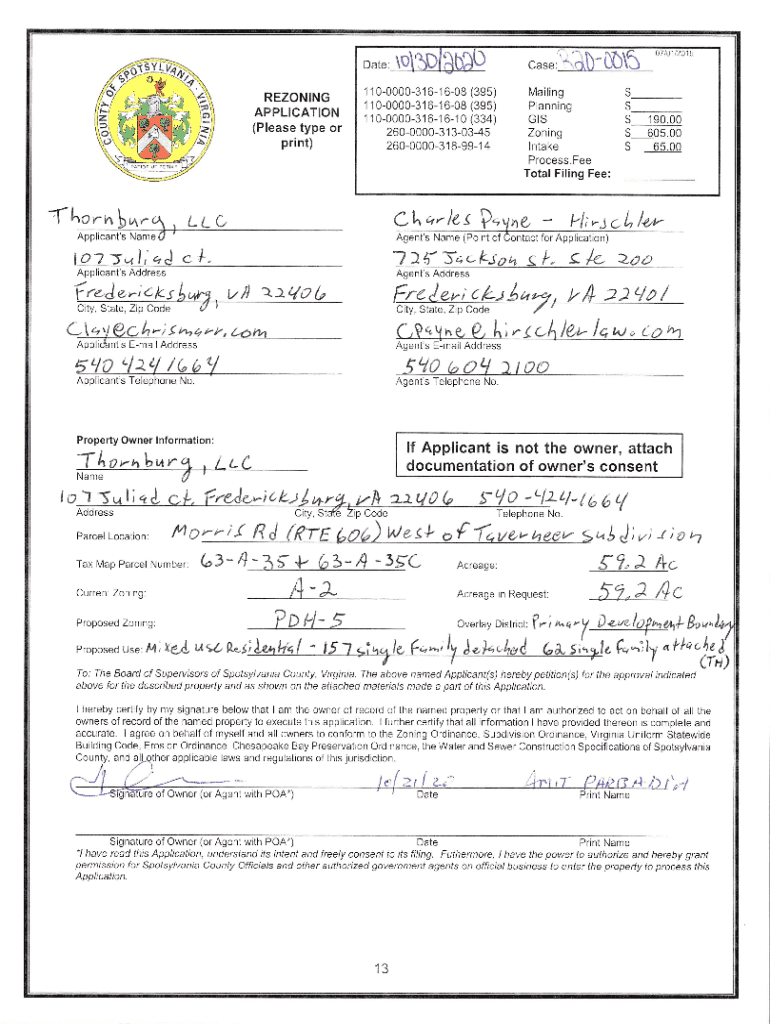 COUNTY OF SPOTSYLVANIA · VIRGINIA
REZONING
APPLICATION
(Please type or
print)
Date: 10/30/2020 Case: R20-0015
110-0000-316-16-08 (395) Mailing $
110-0000-316-16-08 (395) Planning $
110-0000-316-16-10 (334) GIS $ 190.00
260-0000-313-03-45 Zoning $ 605.00
260-0000-318-99-14 Intake $ 65.00
Process.Fee
Total Filing Fee:
Thornburg, LLC Charles Payne - Hirschler
Applicant's Name Agent's Name (Point of Contact for Application)
107 Juliad ct. 725 Jackson st. Ste 200
Applicant's Address Agent's Address
Fredericksburg, VA 22406 Fredericksburg, VA 22401
City, State, Zip Code City, State, Zip Code
Clay@chrismarr.com CPayne@hirschlerlaw.com
Applicant's E-mail Address Agent's E-mail Address
540 424 1664 540 604 2100
Applicant's Telephone No. Agent's Telephone No.
Property Owner Information: If Applicant is not the owner, attach
documentation of owner's consent
Thornburg, LLC
Name
107 Juliad ct. Fredericksburg, VA 22406 540-424-1664
Address City, State Zip Code Telephone No.
Parcel Location: Morris Rd (RTE 606) West of Taverneer subdivision
Tax Map Parcel Number: 63-A-35 + 63-A-35C Acreage: 59.2 Ac
Current Zoning: A-2 Acreage in Request: 59.2 Ac
Proposed Zoning: PDH-5 Overlay District: Primary Development Boundary
Proposed Use: Mixed use Residential - 157 single Family detached 62 single Family attached
(TH)
To: The Board of Supervisors of Spotsylvania County, Virginia. The above named Applicant(s) hereby petition(s) for the approval indicated
above for the described property and as shown on the attached materials made a part of this Application.
I hereby certify by my signature below that I am the owner of record of the named property or that I am authorized to act on behalf of all the
owners of record of the named property to execute this application. I further certify that all information I have provided thereon is complete and
accurate. I agree on behalf of myself and all owners to conform to the Zoning Ordinance, Subdivision Ordinance, Virginia Uniform Statewide
Building Code, Erosion Ordinance, Chesapeake Bay Preservation Ordinance, the Water and Sewer Construction Specifications of Spotsylvania
County, and all other applicable laws and regulations of this jurisdiction.
10/21/20 AMIT PARBADIA
Signature of Owner (or Agent with POA*) Date Print Name
Signature of Owner (or Agent with POA*) Date Print Name
*I have read this Application, understand its intent and freely consent to its filing. Futhermore, I have the power to authorize and hereby grant
permission for Spotsylvania County Officials and other authorized government agents on official business to enter the property to process this
Application.
13